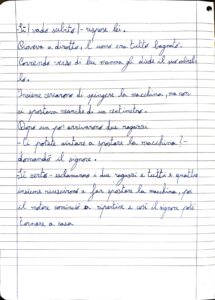 -Sì! vado subito!- rispose lei.
Pioveva a dirotto, l'uomo era tutto bagnato.
Correndo verso di lui mamma gli diede il suo ombrel-
lo.
Insieme cercarono di spingere la macchina, ma non
si spostava neanche di un centimetro.
Dopo un po' arrivarono due ragazzi
-ci potete aiutare a spostare la macchina?-
domandò il signore.
-Sì certo- esclamarono i due ragazzi e tutti e quattro
insieme riuscirono a far spostare la macchina, poi
il motore cominciò a ripartire e così il signore potè
tornare a casa